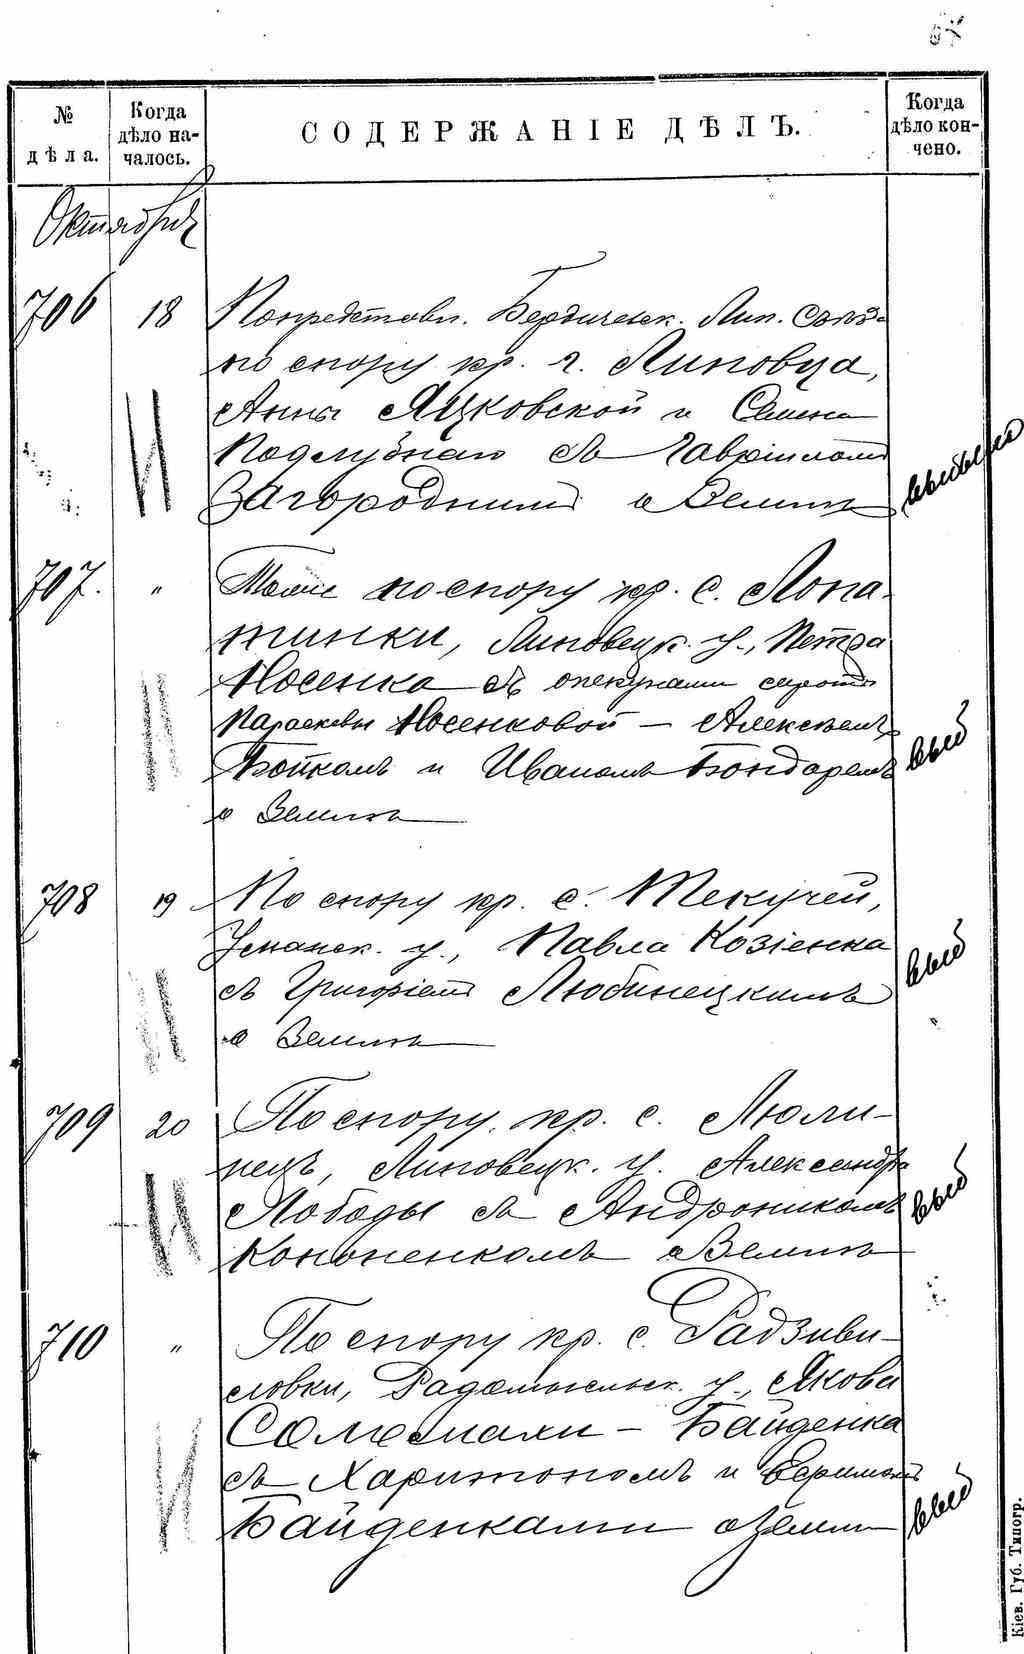 № дѣла.
Когда дѣло на-чалось.
СОДЕРЖАНІЕ ДѢЛЪ.
Когда дѣло кон-чено.
Октябрь
706 18 По представл. Бердичевск. Мир. Съѣз.
по спору кр. г. Липовца,
Анны Яцковской и Семена
Подлубнаго съ Гавріиломъ
Загороднимъ о землѣ
выбыло
707. " Тоже по спору кр. с. Лопа-
тинки, Липовецк. у., Петра
Носенка съ опекунами сироты
Параскевы Носенковой – Алексѣемъ
Бойкомъ и Иваномъ Бондаремъ
о землѣ
выб
708 19 По спору кр. с. Текучей,
Уманск. у., Павла Козіенка
съ Григоріемъ Любинецкимъ
о землѣ
выб
709 20 По спору кр. с. Люли-
нецъ, Липовецк. у. Александра
Лободы съ Андроникомъ
Кононенкомъ о землѣ
выб
710 " По спору кр. с. Радзиви-
ловки, Радомысльск. у., Якова
Соломахи – Байденка
съ Харитономъ и Ефимомъ
Байденками о земли
выб
Кіев. Губ. Типогр.